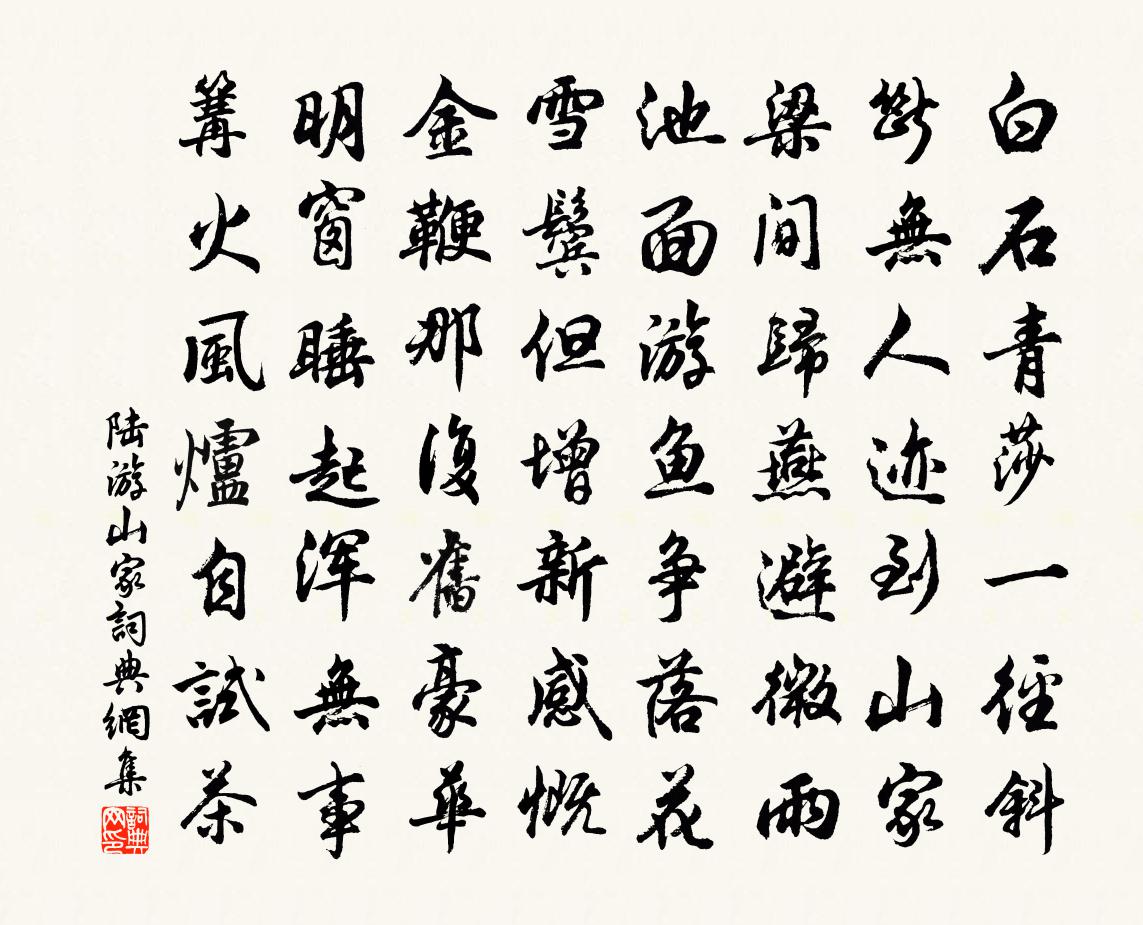 白石青莎一徑斜
斷無人迹到山家
梁間歸燕避微雨
池面游魚争落花
雪鬢但增新感慨
金鞭那復舊豪華
明窗睡起浑無事
篝火風爐自試茶
陆游山家詞典網集
詞典
网印